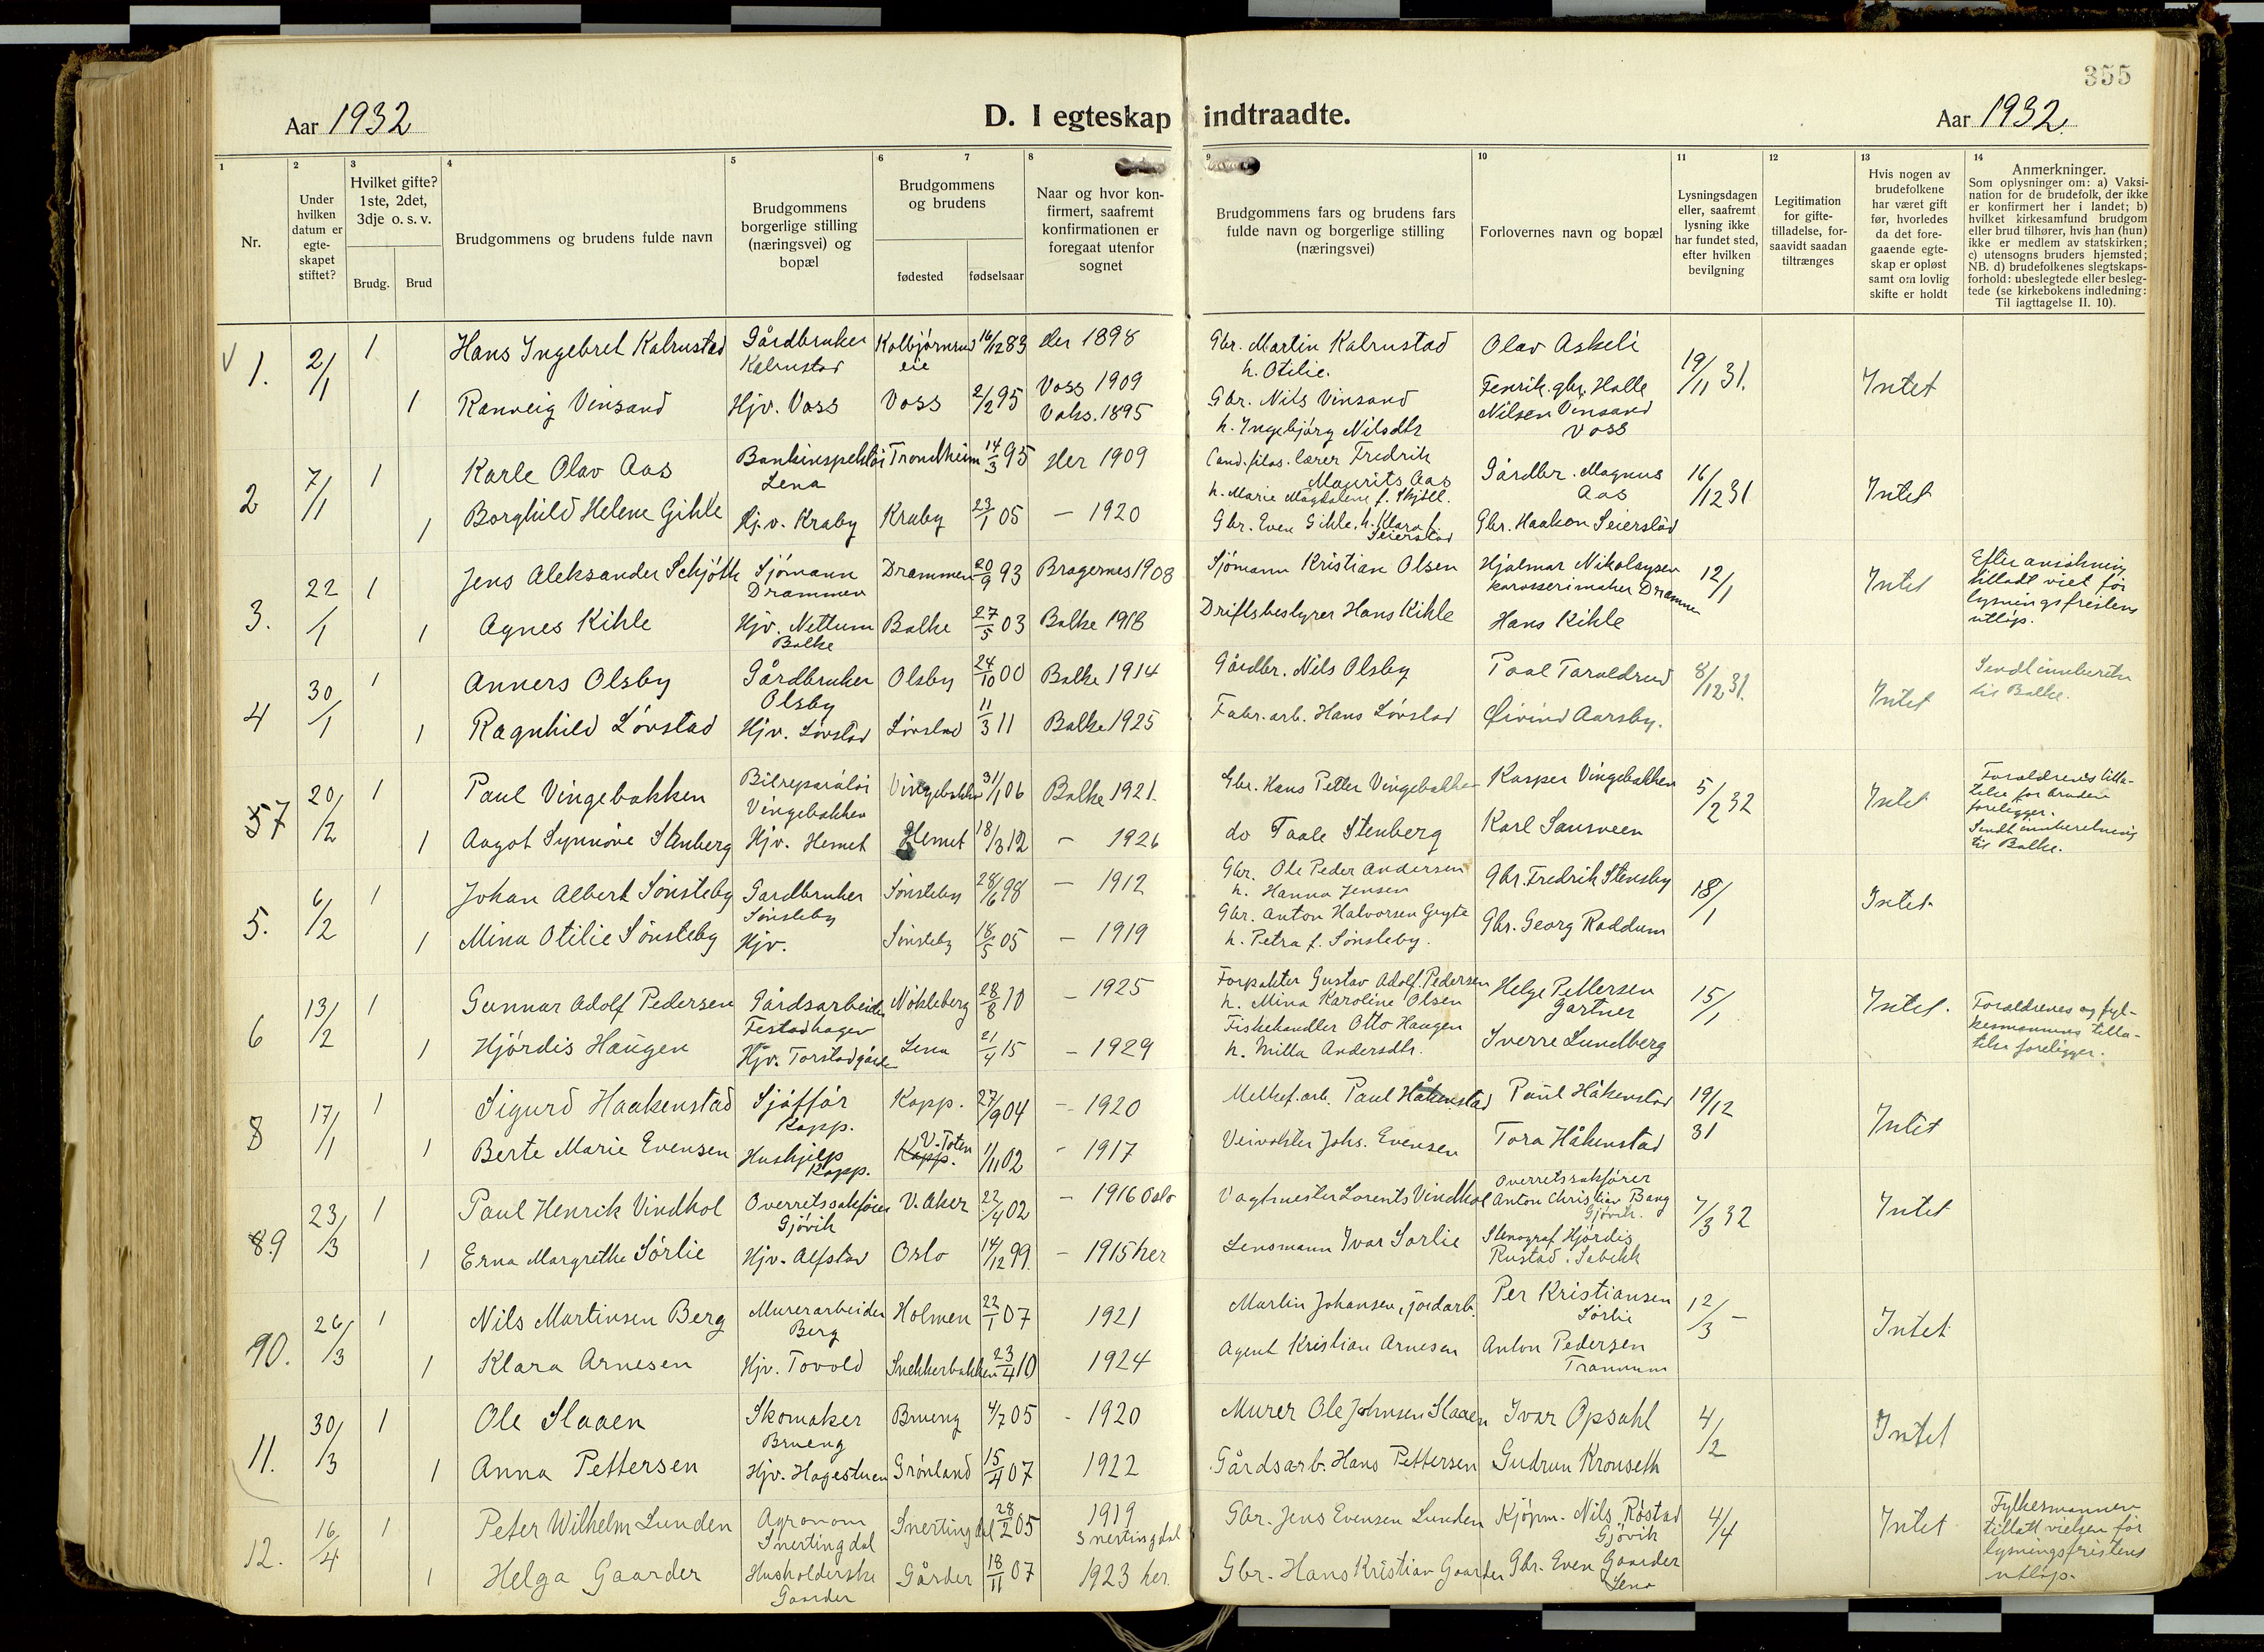 355
Aar 1932
D. I egteskap indtraadte.
Aar 1932.
1
2
Under hvilken datum er egte-skapet stiftet?
3
Hvilket gifte? 1ste, 2det, 3dje o. s. v.
4
5
6
7
8
9
10
11
12
13
14
Nr.
Brudg.
Brud
Brudgommens og brudens fulde navn
Brudgommens borgerlige stilling (næringsvei) og bopæl
Brudgommens og brudens
fødested
fødselsaar
Naar og hvor kon-firmert, saafremt konfirmationen er foregaat utenfor sognet
Brudgommens fars og brudens fars fulde navn og borgerlige stilling (næringsvei)
Forlovernes navn og bopæl
Lysningsdagen eller, saafremt lysning ikke har fundet sted, efter hvilken bevilgning
Legitimation for gifte-tilladelse, for-saavidt saadan tiltrænges
Hvis nogen av brudefolkene har været gift før, hvorledes da det fore-gaaende egte-skap er opløst samt om lovlig skifte er holdt
Anmerkninger.
Som oplysninger om: a) Vaksi-nation for de brudefolk, der ikke er konfirmert her i landet; b) hvilket kirkesamfund brudgom eller brud tilhører, hvis han (hun) ikke er medlem av statskirken; c) utensogns bruders hjemsted; NB. d) brudefolkenes slegtskaps-forhold: ubeslegtede eller besleg-tede (se kirkebokens indledning: Til iagttagelse II. 10).
1. 2/1 1 Hans Ingebret Kalrustad Gårdbruker Kalrustad Kolbjørnrud eie 16/12 83 Her 1898 Gbr. Martin Kalrustad h. Otilie. Olav Askeli 19/11 31. Intet
1 Ranveig Vinsand Hjv. Voss Voss 2/2 95 Voss 1909 Vaks. 1895 Gbr. Nils Vinsand h. Ingebjørg Nilsdtr Fenrik. gbr. Halle Nilsen Vinsand Voss
2 7/1 1 Karle Olav Aas Bankinspektør Lena Trondheim 14/3 95 Her 1909 Cand. filos. lærer Fredrik Maurits Aas h. Marie Magdalene f. Skjøll. Gårdbr. Magnus Aas 16/12 31 Intet
1 Borghild Helene Gihle Hj.v. Kraby Kraby 23/1 05 — 1920 Gbr. Even Gihle. h. Klara f. Seierstad Gbr. Haakon Seierstad
3. 22/1 1 Jens Aleksander Schjøth Sjømann Drammen Drammen 20/9 93 Bragernes 1908 Sjømann Kristian Olsen Hjalmar Nikolaysen karosserimaker Drammen 12/1 Intet Efter ansøkning tilladt viet før lysningsfristens utløp.
1 Agnes Kihle Hjv. Nettum Balke Balke 27/5 03 Balke 1918 Driftsbestyrer Hans Kihle Hans Kihle
4 30/1 1 Anners Olsby Gårdbruker Olsby Olsby 24/10 00 Balke 1914 Gårdbr. Nils Olsby Paal Taraldrud 8/12 31. Intet Sendt innberetn til Balke.
1 Ragnhild Løvstad Hjv. Løvstad Løvstad 11/3 11 Balke 1925 Fabr. arb. Hans Løvstad Øivind Aarsby.
57 20/2 1 Paul Vingebakken Bilreparatør Vingebakken Vingebakken 31/1 06 Balke 1921. Gbr. Hans Petter Vingebakken Kasper Vingebakken 5/2 32 Intet Forældrenes tilla-telse for bruden foreligger. Sendt innberetning til Balke.
1 Aagot Synnøve Stenberg Hjv. Hemet Hemet 18/3 12 — 1926 do Taale Stenberg Karl Sansveen
5. 6/2 1 Johan Albert Sønsteby Gardbruker Sønsteby Sønsteby 28/6 98 — 1912 Gbr. Ole Peder Andersen h. Hanna Jensen Gbr. Fredrik Stensby 18/1 Intet.
1 Mina Otilie Sønsteby Hjv. Sønsteby 18/5 05 — 1919 Gbr. Anton Halvorsen Gryte h. Petra f. Sønsteby. Gbr. Georg Raddum
6 13/2 1 Gunnar Adolf Pedersen Gårdsarbeider Festadhagen Nøkleberg 28/8 10 — 1925 Forpakter Gustav Adolf Pedersen h. Mina Karoline Olsen Helge Pettersen Gartner 15/1 Intet. Forældrenes og fyl-kesmannens tilla-telse foreligger.
1 Hjørdis Haugen Hjv. Torstadgåsen Lena 21/4 15 — 1929 Fiskehandler Otto Haugen h. Milla Andersdtr. Sverre Lundberg
8 17/1 1 Sigurd Haakenstad Sjåffør Kapp. Kapp. 27/9 04 — 1920 Melkef. arb. Paul Håkenstad Paul Håkenstad 19/12 31 Intet
1 Berte Marie Evensen Hushjelp Kapp. Kapp. V. Toten 1/11 02 - 1917 Veivokter Johs. Evensen Tora Håkenstad
89 23/3 1 Paul Henrik Vindhol Overretssakfører Gjøvik V. Aker 22/4 02 — 1916 Oslo Vagtmester Lorents Vindhol Overretssakfører Anton Christian Bang Gjøvik. 7/3 32 Intet
1 Erna Margrethe Sørlie Hjv. Alfstad Oslo 14/12 99. — 1915 her Lensmann Ivar Sørlie Stenograf Hjørdis Rustad.
90. 26/3 1 Nils Martinsen Berg Murerarbeider Berg Holmen 22/1 07 1921 Martin Johansen, jordarb. Per Kristiansen Sørlie 12/3 — Intet
1 Klara Arnesen Hjv. Tovold Snekkerbakken 23/4 10 1924 Agent Kristian Arnesen Anton Pedersen Trannum
11. 30/3 1 Ole Slaaen Skomaker Brueng Brueng 4/7 05 - 1920 Murer Ole Johnsen Slaaen Ivar Opsahl 4/2 Intet
1 Anna Pettersen Hjv. Hagestuen Grønland 15/4 07 1922 Gårdsarb. Hans Pettersen Gudrun Kronseth
12. 16/4 1 Peter Wilhelm Lunden Agronom Snertingdal Snertingdal 28/2 05 1919 Snertingdal Gbr. Jens Evensen Lunden Kjøpm. Nils Røstad Gjøvik 4/4 Intet Fylkesmannen tillatt vielsen før lysningsfristens utløp.
1 Helga Gaarder Husholderske Gaarder Gårder 18/11 07 1923 her. Gbr. Hans Kristian Gaarder Gbr. Even Gaarder Lena